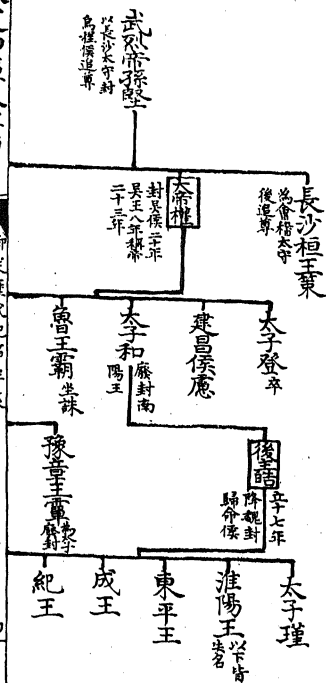 武烈帝孫堅
以長沙太守封
烏程侯追尊
長沙桓王策
為會稽太守
後追尊
大帝權
封吳侯二十年
吳王八年稱帝
二十三年
太子登 卒
建昌侯慮
太子和 廢封南
陽王
魯王霸 坐誅
後主皓
立十七年
降魏封
歸命侯
豫章王𩅦
廢封
太子瑾
淮陽王 以下皆
失名
東平王
成王
紀王